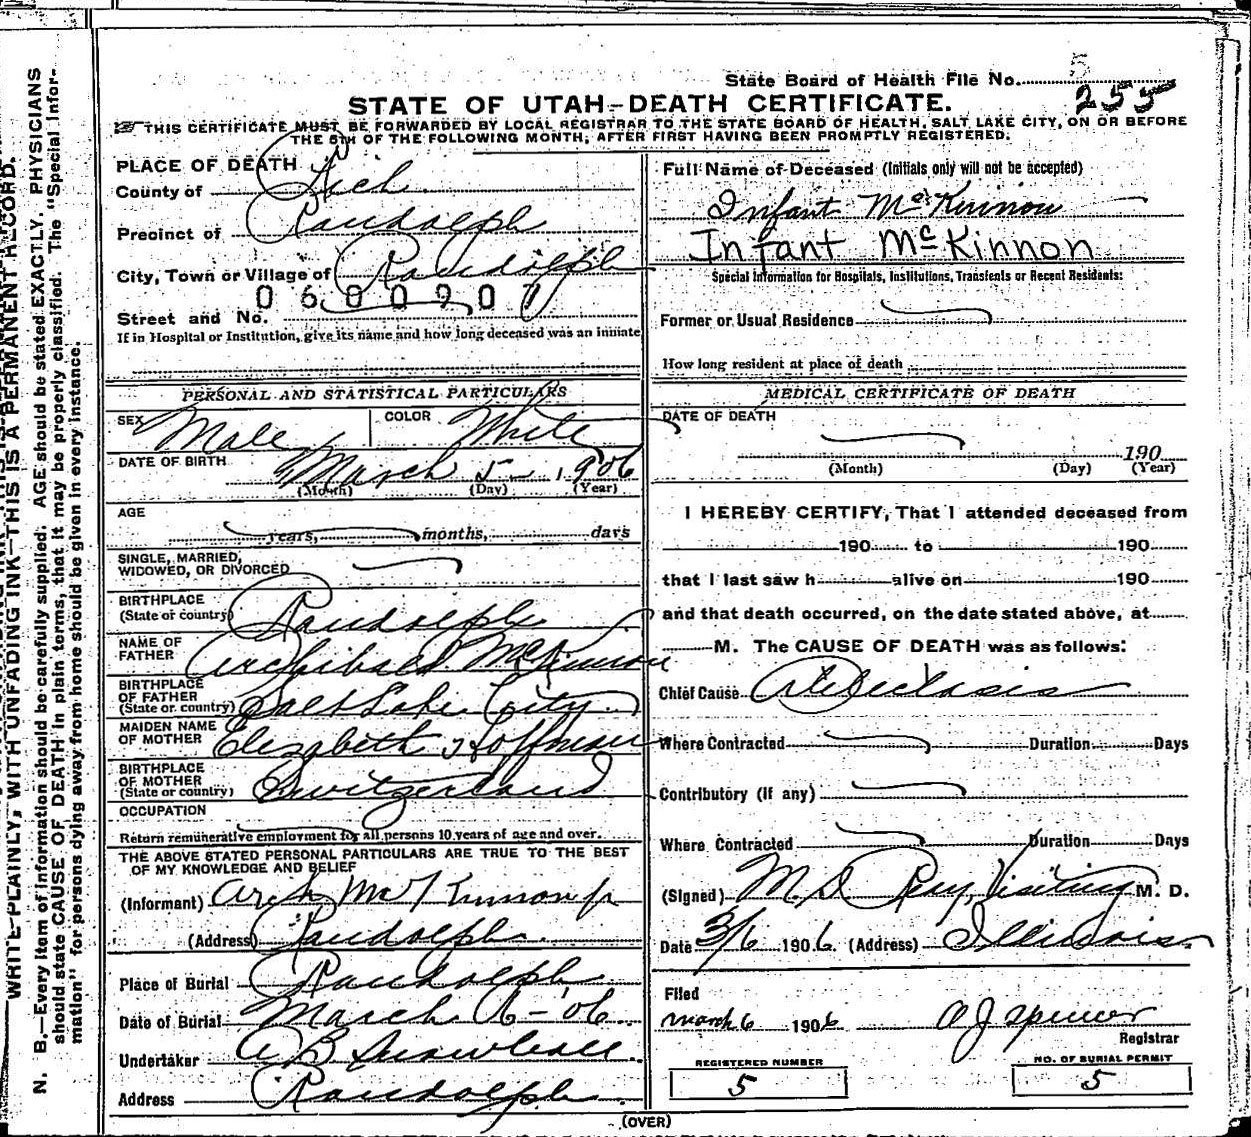 WRITE PLAINLY, WITH UNFADING INK—THIS IS A PERMANENT RECORD.
N. B.—Every item of information should be carefully supplied. AGE should be stated EXACTLY. PHYSICIANS
should state CAUSE OF DEATH in plain terms, that it may be properly classified. The "Special Infor-
mation" for persons dying away from home should be given in every instance.
State Board of Health File No. 5
255
STATE OF UTAH—DEATH CERTIFICATE.
THIS CERTIFICATE MUST BE FORWARDED BY LOCAL REGISTRAR TO THE STATE BOARD OF HEALTH, SALT LAKE CITY, ON OR BEFORE
THE 5TH OF THE FOLLOWING MONTH, AFTER FIRST HAVING BEEN PROMPTLY REGISTERED.
PLACE OF DEATH
County of Rich
Precinct of Randolph
City, Town or Village of Randolph
0600907
Street and No.
If in Hospital or Institution, give its name and how long deceased was an inmate
PERSONAL AND STATISTICAL PARTICULARS
SEX Male COLOR White
DATE OF BIRTH March 5 1906
(Month) (Day) (Year)
AGE
years, months, days
SINGLE, MARRIED,
WIDOWED, OR DIVORCED
BIRTHPLACE
(State or country) Randolph
NAME OF
FATHER Archibald McKinnon
BIRTHPLACE
OF FATHER
(State or country) Salt Lake City
MAIDEN NAME
OF MOTHER Elizabeth Hoffman
BIRTHPLACE
OF MOTHER
(State or country) Switzerland
OCCUPATION
Return remunerative employment for all persons 10 years of age and over.
THE ABOVE STATED PERSONAL PARTICULARS ARE TRUE TO THE BEST
OF MY KNOWLEDGE AND BELIEF
(Informant) Arch McKinnon jr
(Address) Randolph
Place of Burial Randolph
Date of Burial March 6-06
Undertaker A B
Address Randolph
Full Name of Deceased (Initials only will not be accepted)
Infant McKinnon
Infant McKinnon
Special Information for Hospitals, Institutions, Transients or Recent Residents:
Former or Usual Residence
How long resident at place of death
MEDICAL CERTIFICATE OF DEATH
DATE OF DEATH
190
(Month) (Day) (Year)
I HEREBY CERTIFY, That I attended deceased from
190 to 190
that I last saw h alive on 190
and that death occurred, on the date stated above, at
M. The CAUSE OF DEATH was as follows:
Chief Cause Atelectasis
Where Contracted Duration Days
Contributory (if any)
Where Contracted Duration Days
(Signed) M. D. Visiting M. D.
Date 3/6 1906. (Address) Illinois.
Filed
March 6 1906 O J Spencer
Registrar
REGISTERED NUMBER NO. OF BURIAL PERMIT
5 5
(OVER)